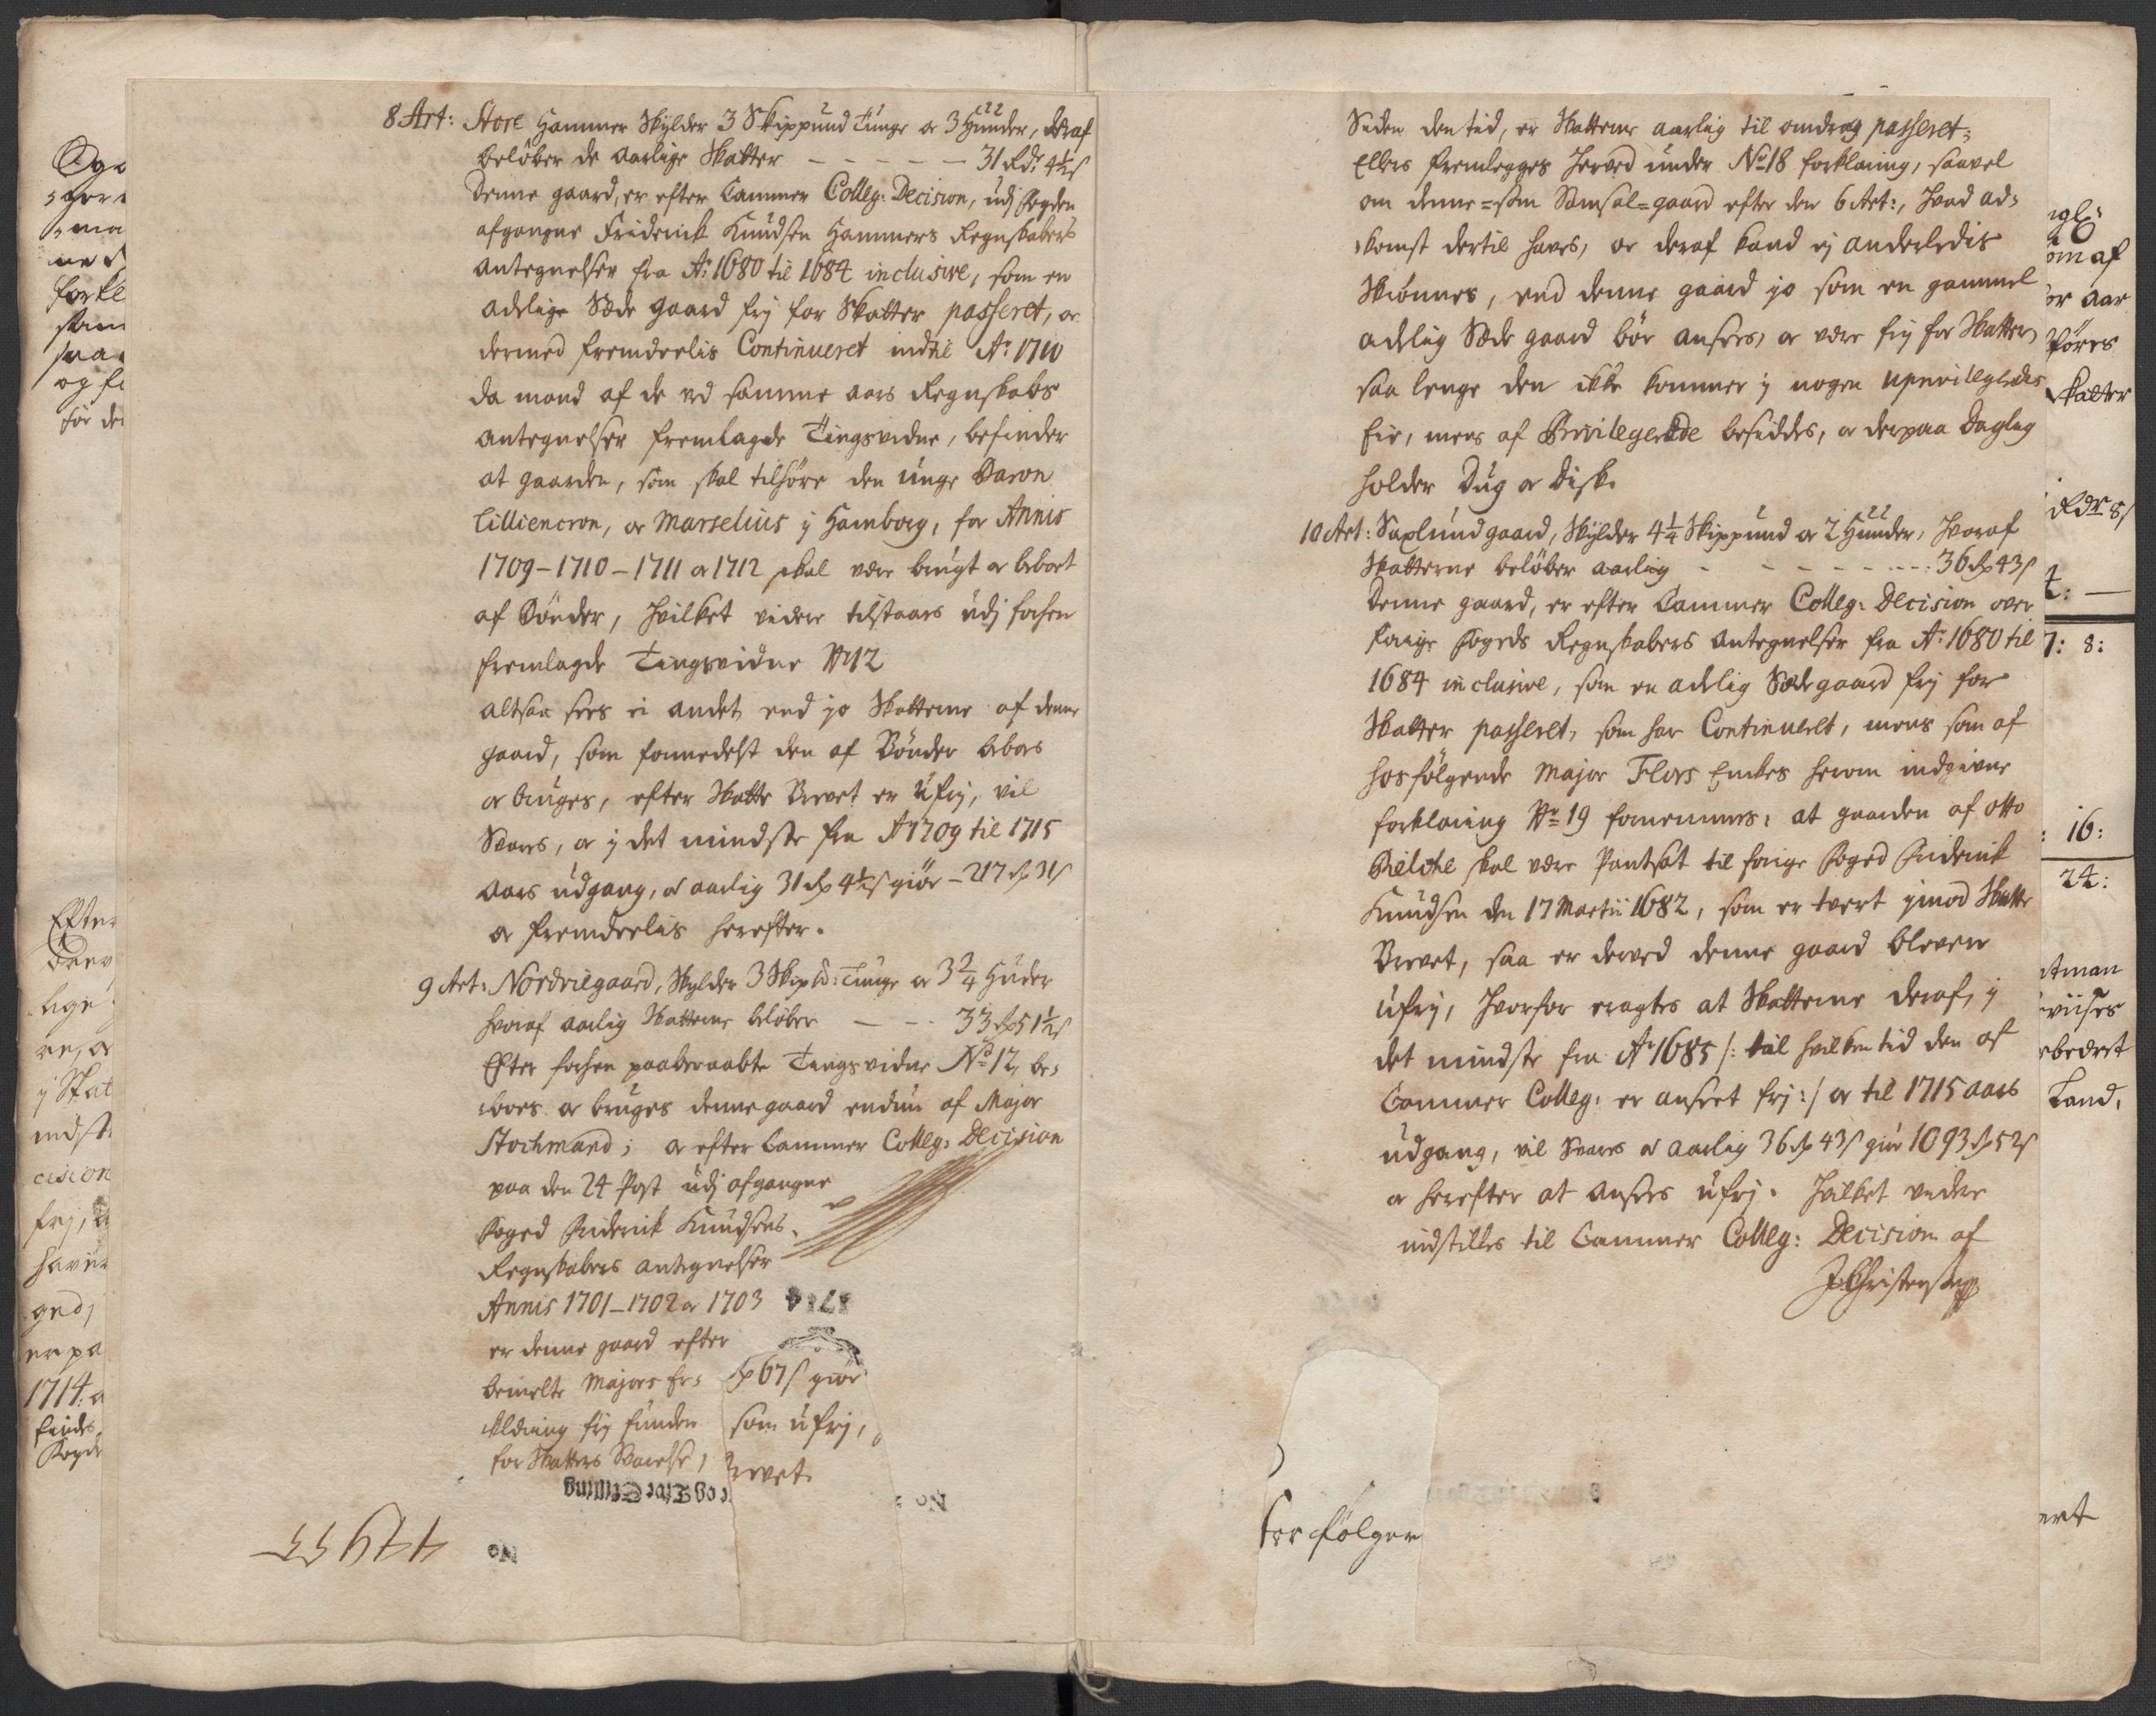 8 Art: Store Hammer Skylder 3 Skippund Tunge or 3 Huuder, deraf
beløber de aarlige Skatter — — — — — 31 Rdr 4½ s
Denne gaard, er efter Cammer Colleg: Decision, udj Fogden
afgangne Friderick Knudsen Hammers Regnskabers
Antegnelser fra Ao: 1680 til 1684 inclusive, som en
adelige Sæde gaard frj for Skatter passeret, or
dermed fremdeelis Continueret indtil Ao: 1710
da mand af de ved samme aars Regnskabs
Antegnelser fremlagde Tingsvidne, befinder
at gaarden, som skal tilhøre den unge Baron
Lilliencron, or Marselius j Hamborg, for Annis
1709 – 1710 – 1711 or 1712 skal være brugt or beboet
af Bønder, hvilket videre tilstaaes udj
fremlagde Tingsvidne No 12
altsaa sees ei andet end jo Skatterne af denne
gaard, som formedelst den af Bønder beboes
or bruges, efter Skatte Brevet er Ufrj, vil
Svares, or j det mindste fra Ao 1709 til 1715
aars udgang, a aarlig 31 rd 4½ s giør – 217 rd 31 s
or fremdeelis herefter.
9 Art: Nordviegaard, Skylder 3 Skip lb: Tunge or 3¾ Huder
hvoraf aarlig Skatterne beløber — — 33 rd 51½ s
Efter paaberaabte Tingsvidne No 12, be-
boes or bruges denne gaard endnu af Major
Stochmand; or efter Cammer Colleg: Decision
paa den 24 Post udj afgangne
Foged Friderick Knudsens
Regnskabers antegnelser
Annis 1701 – 1702 or 1703
er denne gaard efter
bemelte Majors Er-
klæring frj funden
for Skatters Svarelse,
rd 67 s giør
som ufrj,
Brevet.
og Tolv Skilling
No
No
Siden den tid, er Skatterne aarlig til omdrag passeret:
Ellers fremlegges herved under No 18 forklaring, saavel
om denne = som Semsal = gaard efter den 6 Art:, hvad ad-
komst dertil haves, or deraf kand ej anderledis
Skiønnes, end denne gaard jo som en gammel
adelig Sæde gaard bør ansees, or være frj for Skatter,
saa lenge den ikke kommer j nogen uprivilegeredes
Eie, mens af Privilegerede besiddes, or derpaa Daglig
holder Dug or Disk.
10 Art: Saxlund gaard, Skylder 4¼ Skippund or 2 Huuder, hvoraf
Skatterne beløber aarlig - - - - - - 36 rd 43 s
Denne gaard, er efter Cammer Colleg: Decision over
forige Fogeds Regnskabers Antegnelser fra Ao: 1680 til
1684 inclusive, som en adelig Sædegaard frj for
Skatter passeret, som har Continueret, mens som af
hosfølgende Major Flors Enkes herom indgivne
forklaring No 19 fornemmes: at gaarden af Otto
Bielche skal være Pantsat til forige Foged Friderick
Knudsen den 17 Martii 1682, som er tvert jmod Skatte
Brevet, saa er derved denne gaard bleven
ufrj, hvorfor eragtes at Skatterne deraf, j
det mindste fra Ao 1685 /: til hvilken tid den af
Cammer Colleg: er anseet frj :/ or til 1715 aars
udgang, vil Svares a aarlig 36 rd 43 s giør 1093 rd 52 s
or herefter at ansees ufrj. Hvilket videre
indstilles til Cammer Colleg: Decision af
JChristensen
følger
om af
or aar
føres
Skatter
Rdr 8 s
7: 8:
: 16:
24:
Land.
1714: